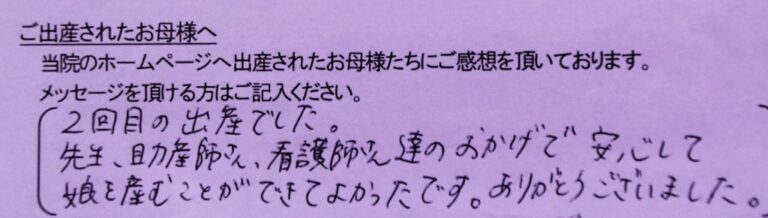 ご出産されたお母様へ
当院のホームページへ出産されたお母様たちにご感想を頂いております。
メッセージを頂ける方はご記入ください。
2回目の出産でした。
先生、助産師さん、看護師さん達のおかげで安心して
娘を産むことができてよかったです。ありがとうございました。